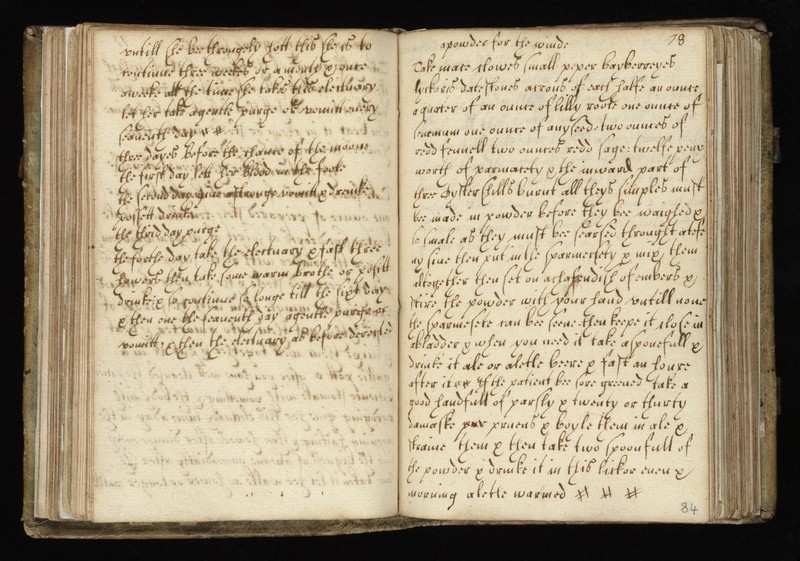 vntill she bee throughly hott this she is to
continue three weekes or a month & once
a weeke all the time she takes this electuary
let her take a gentle purge or vomitt every
seauenth day
three dayes before the chance of the moone
the first day lett her blood in the foote
the second day giue a stronge vomitt & drinke
possett drinke
the third day purge
the forth day take the electuary & fast three
howers then take some warm brothe or posett
drinke & so continue so longe till the sixt day
& then one the seauenth day a gentle purge or
vomitt & then the electuary as before
78
a powder for the winde
Take mace clowes small peper bayberreyes
lykoris date stones acrons of each halfe an ounce
a quarter of an ounce of lilly roote one ounce of
one ounce of anyseed two ounces of
redd fennell two ounces redd sage twelfe peny
worth of parmacety & the inward part of
three oyster shills burnt all theys simples must
bee made in powder before they bee waighed &
so smale as they must bee searsed through
siue then put in the sparmesety & mix them
alltogether then set on a dish of embers &
stire the powder with your hand vntill none
the sparmesete can bee seene then keepe it close in
a bladder & when you need it take a sponefull &
drinke it ale or a letle beere & fast an houre
after it if the patient bee sore greeued take a
good handfull of parsly & twenty or thurty
damaske pruens & boyle them in ale &
straine them & then take two spoonfull of
the powder & drinke it in this lickor euen &
morning a letle warmed
84